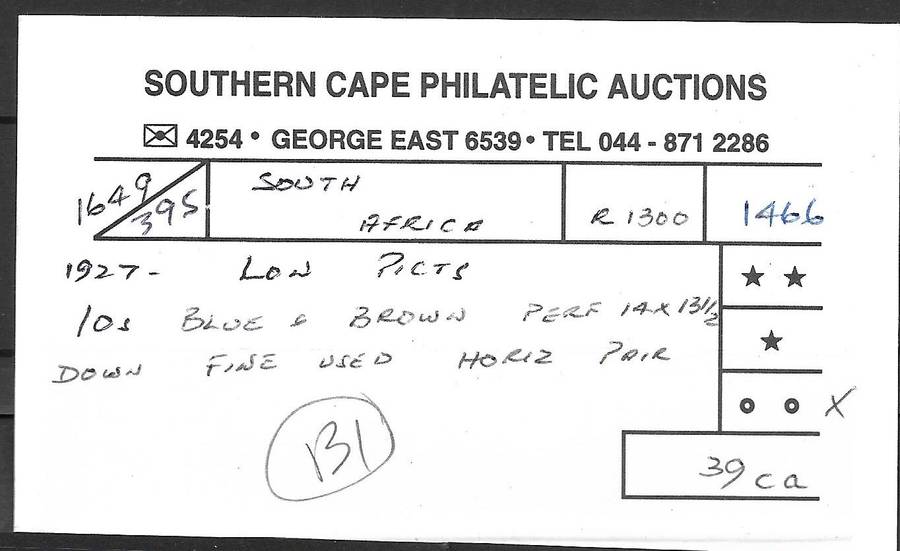 SOUTHERN CAPE PHILATELIC AUCTIONS
4254 • GEORGE EAST 6539 • TEL 044 - 871 2286
1649/395 SOUTH AFRICA R 1300 1466
1927- LOW PICTS
10s BLUE & BROWN PERF 14 X 13 1/2
DOWN FINE USED HORIZ PAIR
X
B1
39 ca